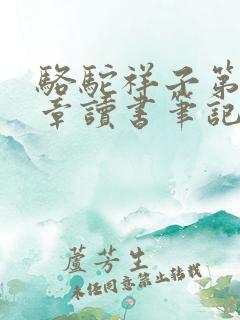 駱駝祥子第
章讀書筆記
蘆芳生
未經同意禁止轉載